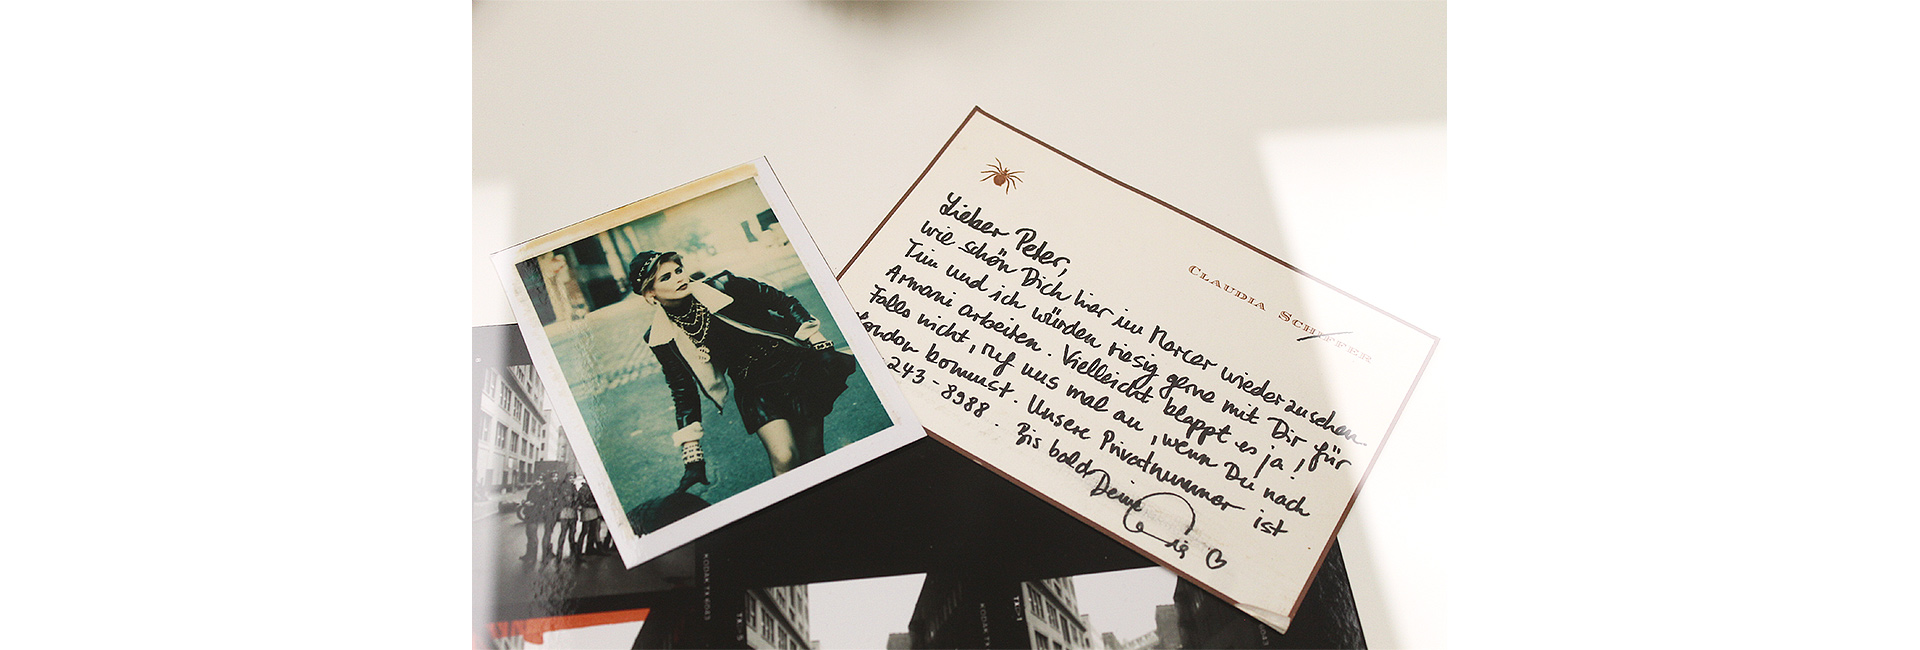 CLAUDIA SCHIFFER
Lieber Peter,
wie schön Dich hier im Mercer wiederzusehen.
Tim und ich würden riesig gerne mit Dir für
Armani arbeiten. Vielleicht klappt es ja!
Falls nicht, ruf uns mal an, wenn Du nach
London kommst. Unsere Privatnummer ist
243-8988. Bis bald
Deine
KODAK TX 6043